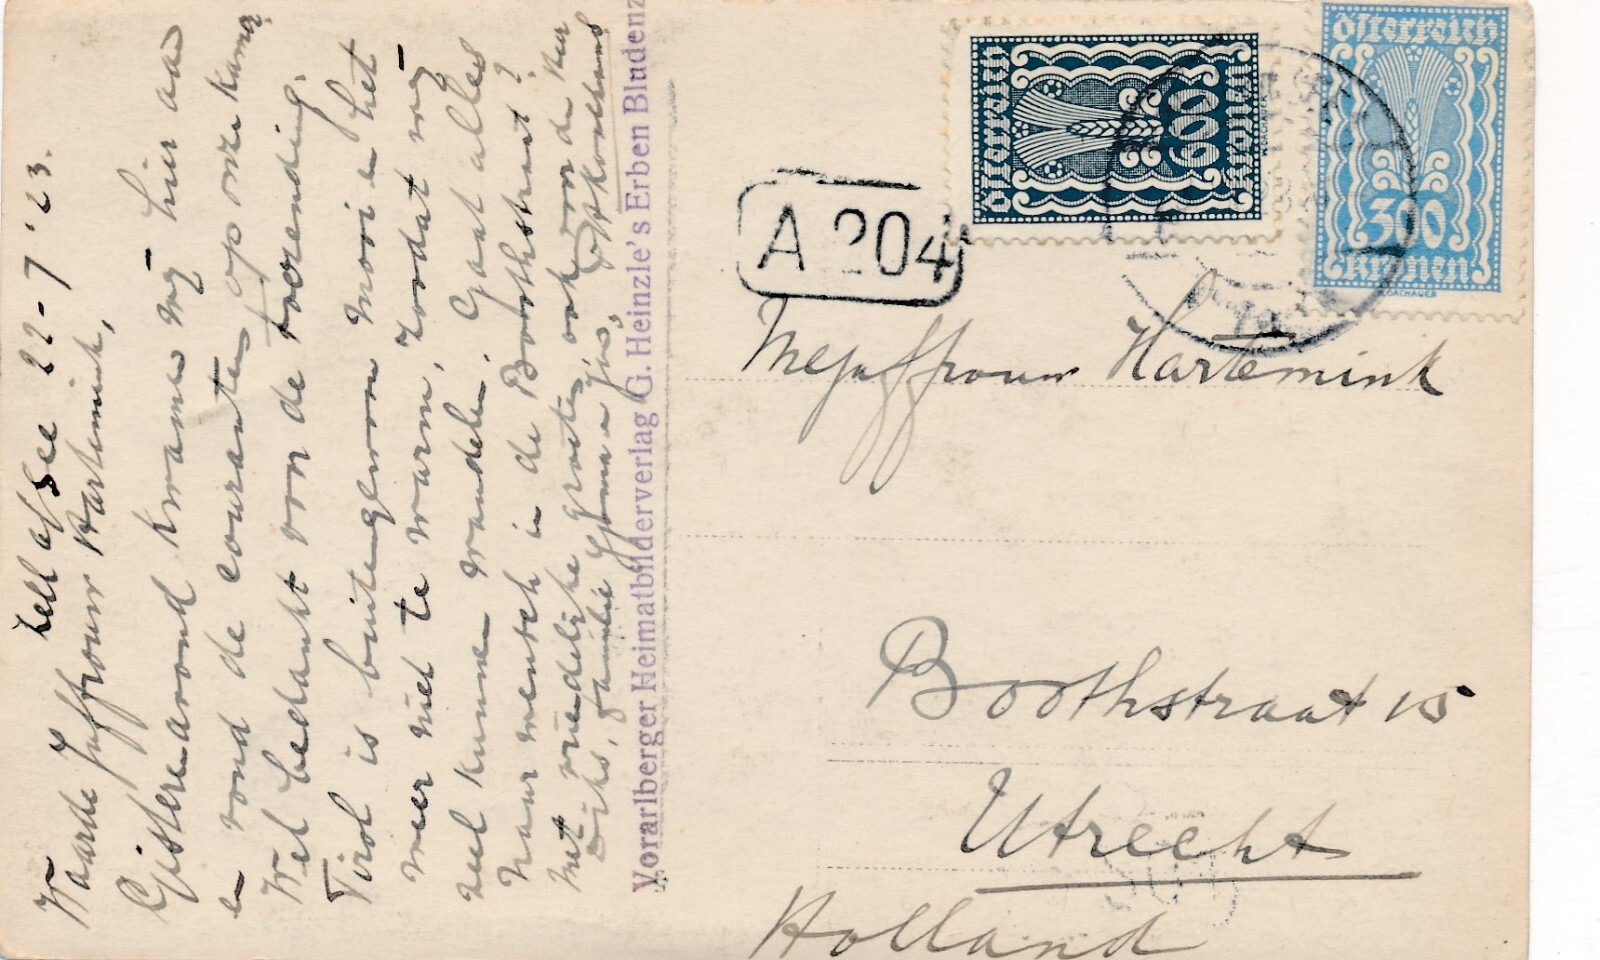 Zell a/See 22-7 '23.
Waarde Juffrouw Hartemink,
Gisterenavond kwamen wij hier aan
en vond de couranten op onze kamer
Wel bedankt voor de toezending.
Tirol is buitengewoon mooi en het
weer niet te warm, zoodat wij
veel kunnen wandelen. Gaat alles
naar wensch in de Boothstraat?
Met vriendelijke groeten, ook voor de Heer
familie
Vorarlberger Heimatbilderverlag G. Heinzle's Erben Bludenz
Österreich
600
Kronen
Österreich
300
Kronen
A 204
Mejuffrouw Hartemink
Boothstraat 15
Utrecht
Holland